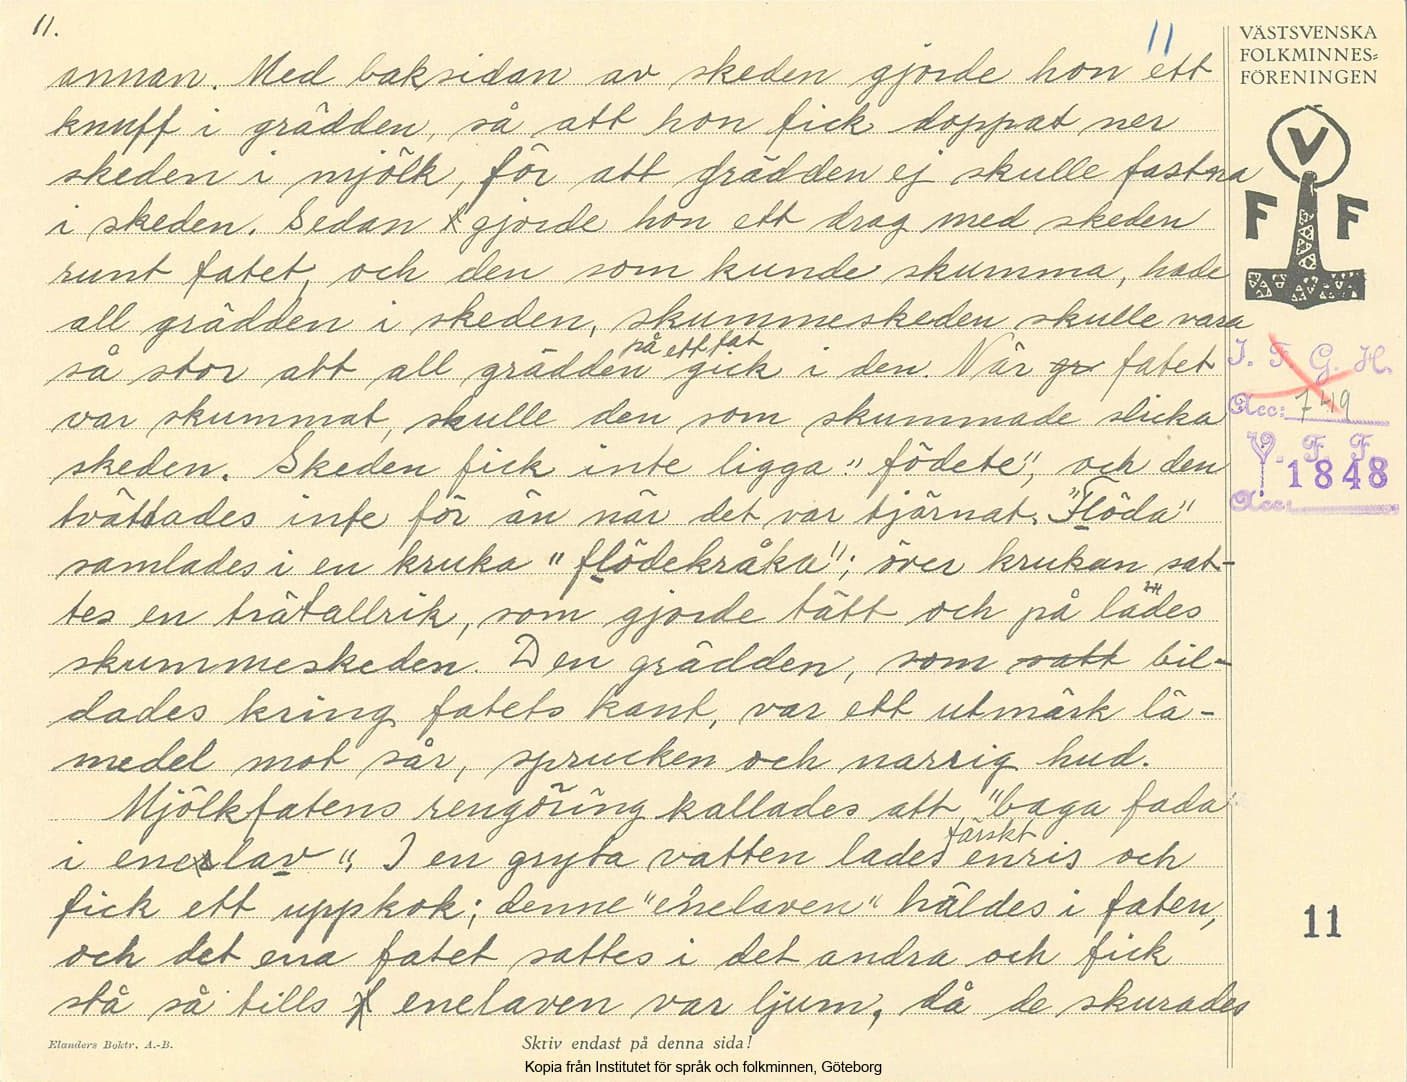 11.
11
annan. Med baksidan av skeden gjorde hon ett
knuff i grädden, så att hon fick doppat ner
skeden i mjölk, för att grädden ej skulle fastna
i skeden. Sedan gjorde hon ett drag med skeden
runt fatet, och den som kunde skumma, hade
all grädden i skeden, skummeskeden skulle vara
på ett fat
så stor att all grädden gick i den. När gr fatet
var skummat, skulle den som skummade slicka
skeden. Skeden fick inte ligga "födete", och den
tvättades inte för än när det var tjärnat. "Flöda"
samlades i en kruka "flödekråka"; över krukan sat-
tes en trätallrik, som gjorde tätt och på lades
skummeskeden. Den grädden, som satt bil-
dades kring fatets kant, var ett utmärk lä-
medel mot sår, sprucken och narrig hud.
Mjölkfatens rengöring kallades att "baga fada
färskt
i enelav". I en gryta vatten lades enris och
fick ett uppkok; denne "enelaven" häldes i faten,
och det ena fatet sattes i det andra och fick
stå så tills enelaven var ljum, då de skurades
VÄSTSVENSKA
FOLKMINNES=
FÖRENINGEN
V
F F
I. F. G. H.
Acc: 749
V. F. F.
1848
Acc:
11
Elanders Boktr. A.-B.
Skriv endast på denna sida!
Kopia från Institutet för språk och folkminnen, Göteborg